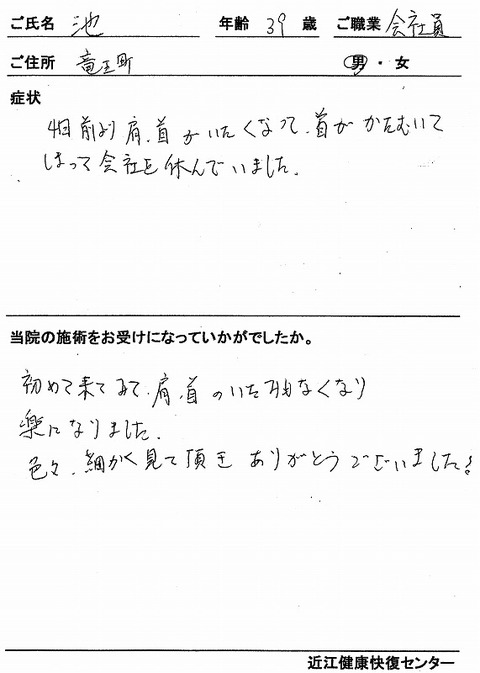 ご氏名 池 年齢 39 歳 ご職業 会社員
ご住所 竜王町 男・女
症状
4日前より肩、首がいたくなって、首がかたむいて
しまって会社を休んでいました。
当院の施術をお受けになっていかがでしたか。
初めて来てみて、肩、首のいたみもなくなり
楽になりました。
色々、細かく見て頂き ありがとうございました!
近江健康快復センター